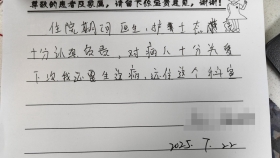 尊敬的患者及家属，请留下您宝贵意见，谢谢！
住院期间医生，护士态度
十分认真负责，对病人十分关爱
下次我还要生这病，还住这个科室
2025.7.22